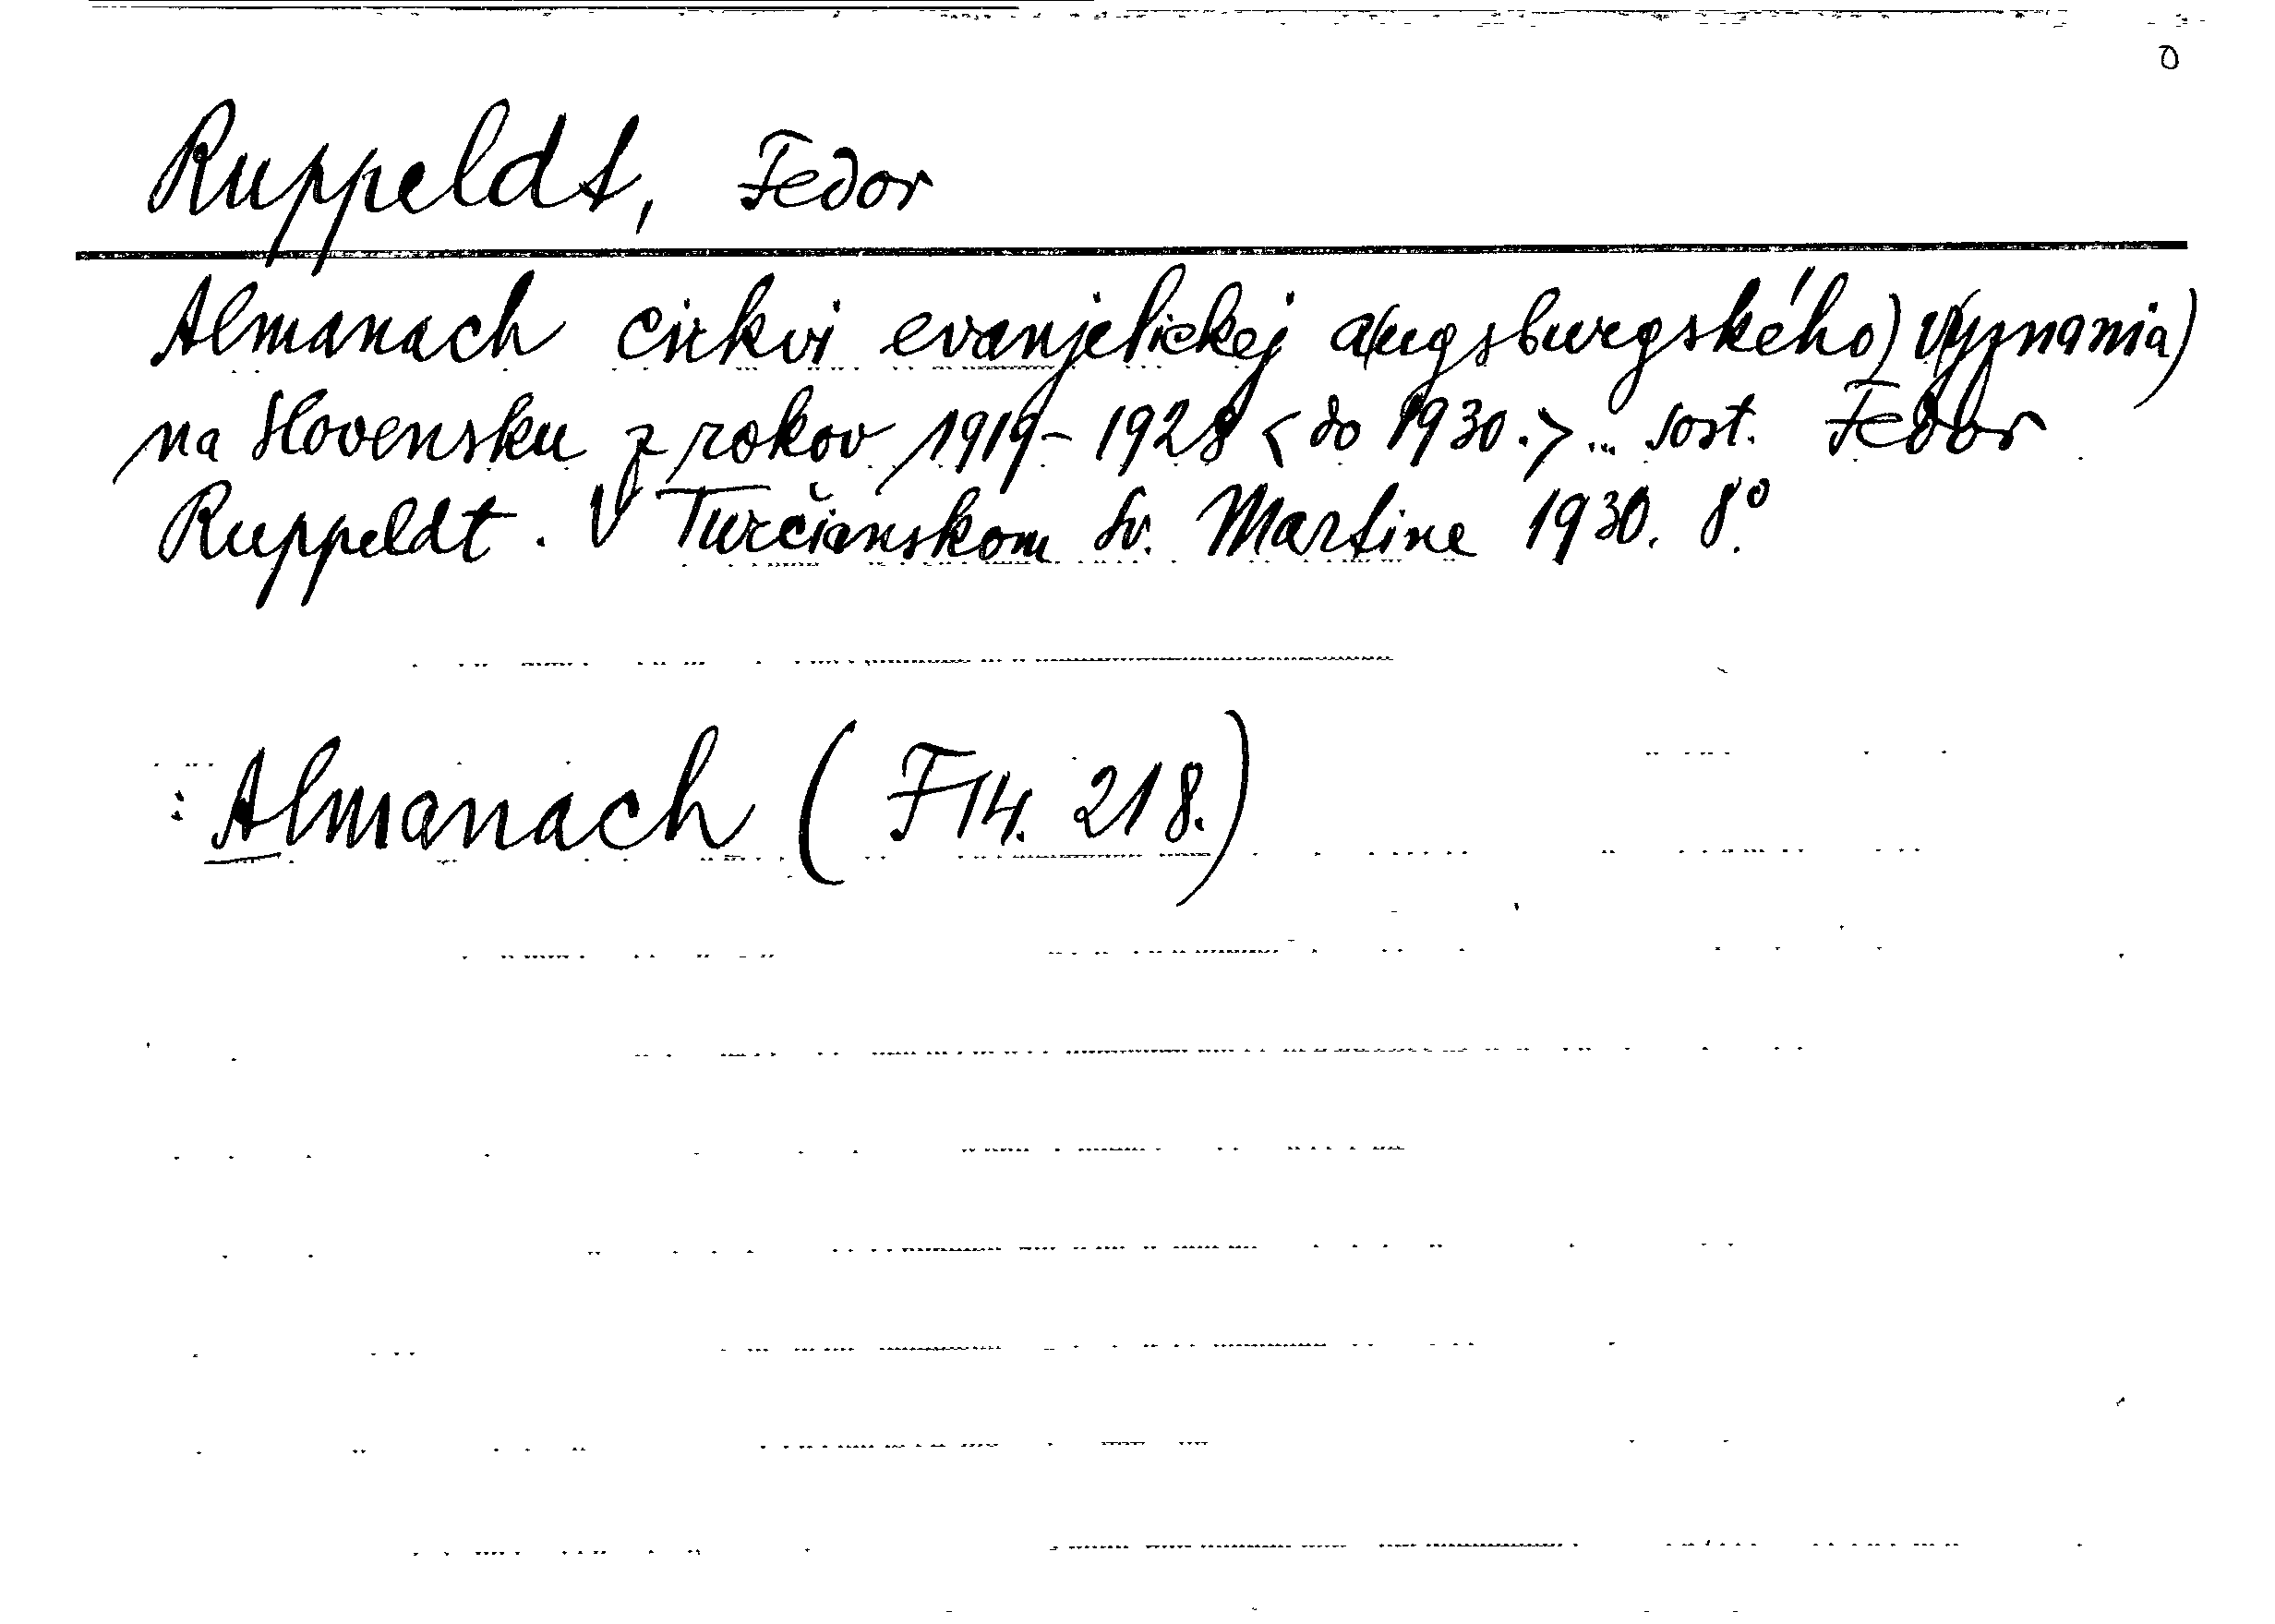 0
Ruppeldt, Fedor
Almanach cirkvi evanjelickej a(ugsburgského) v(yznania)
na Slovensku z rokov 1919-1928 <do 1930.> ... sost. Fedor
Ruppeldt. V Turčianskom Sv. Martine 1930. 8°.
: Almanach (F 14. 218.)